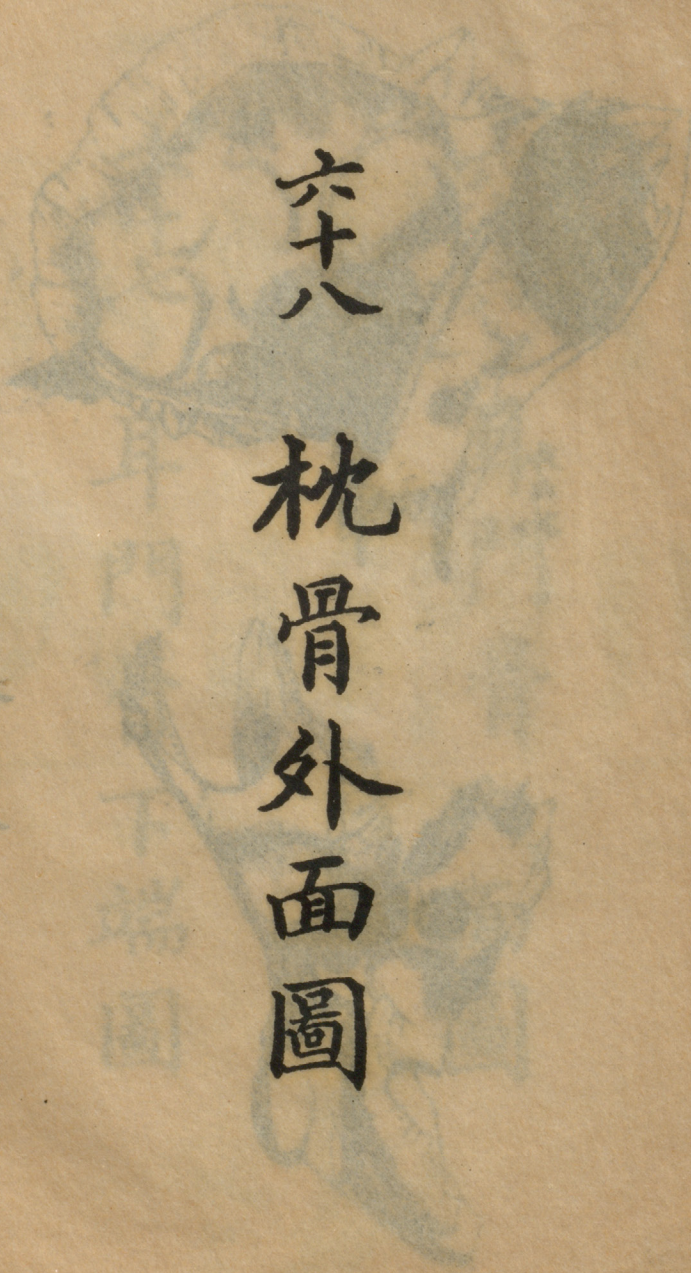 六十八 枕骨外面圖